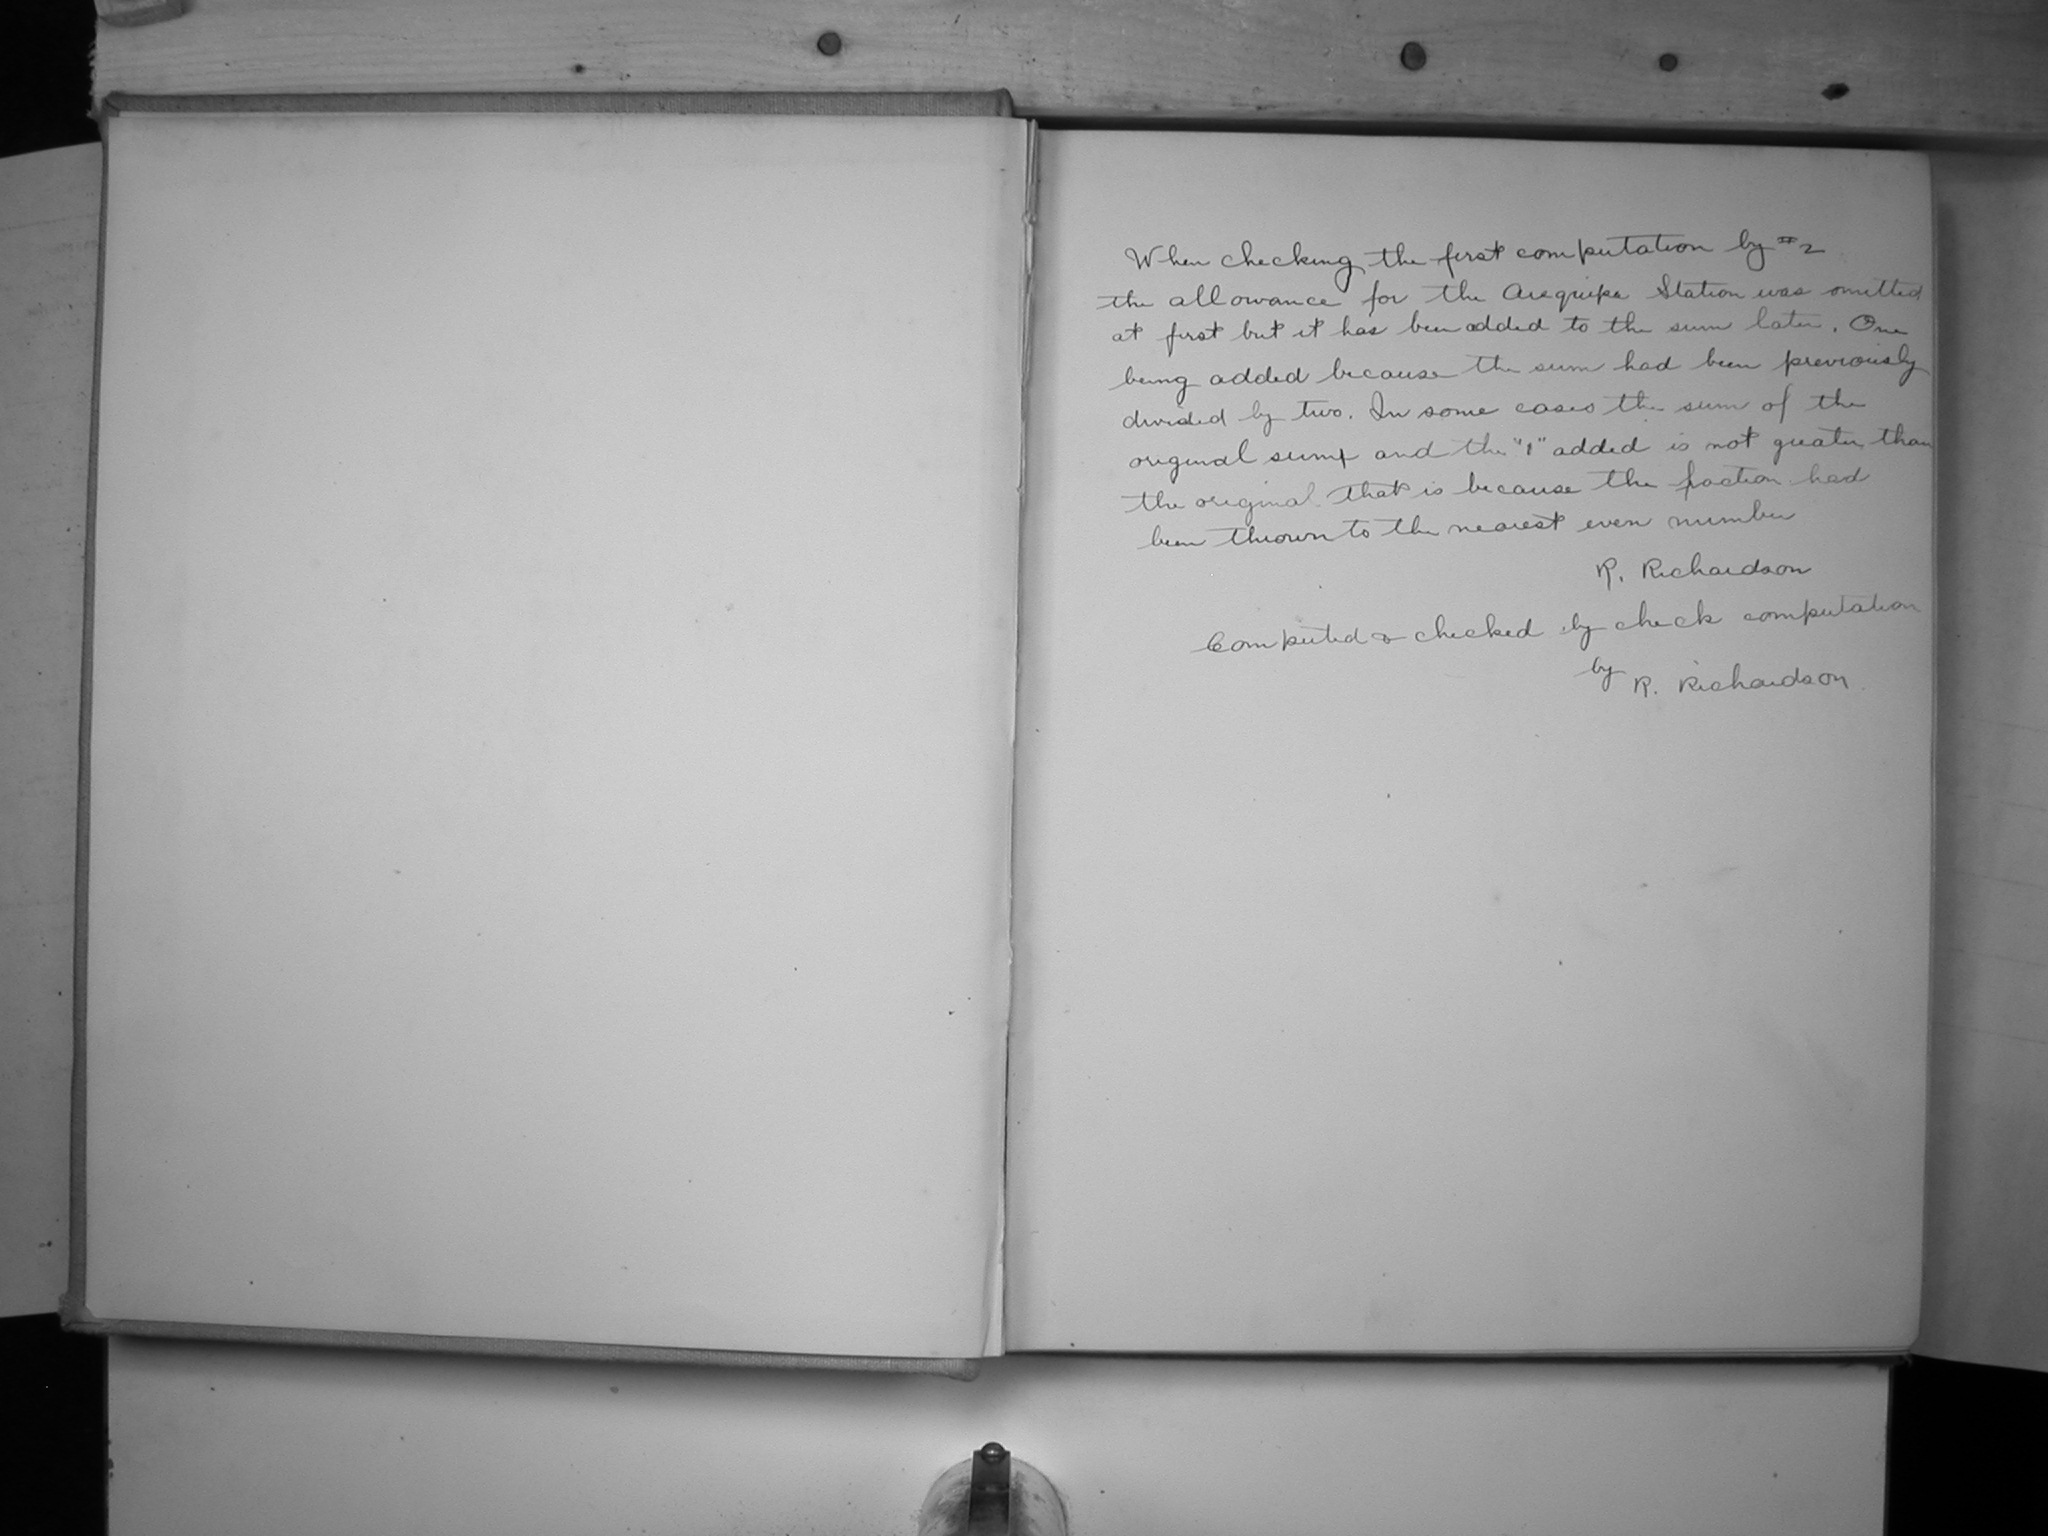 When checking the first computation by #2
the allowance for the Arequipa Station was omitted
at first but it has been added to the sum later. One
being added because the sum had been previously
divided by two. In some cases the sum of the
original sum and the "1" added is not greater than
the original. That is because the fraction had
been thrown to the nearest even number
R. Richardson
Computed & checked by check computation
by R. Richardson